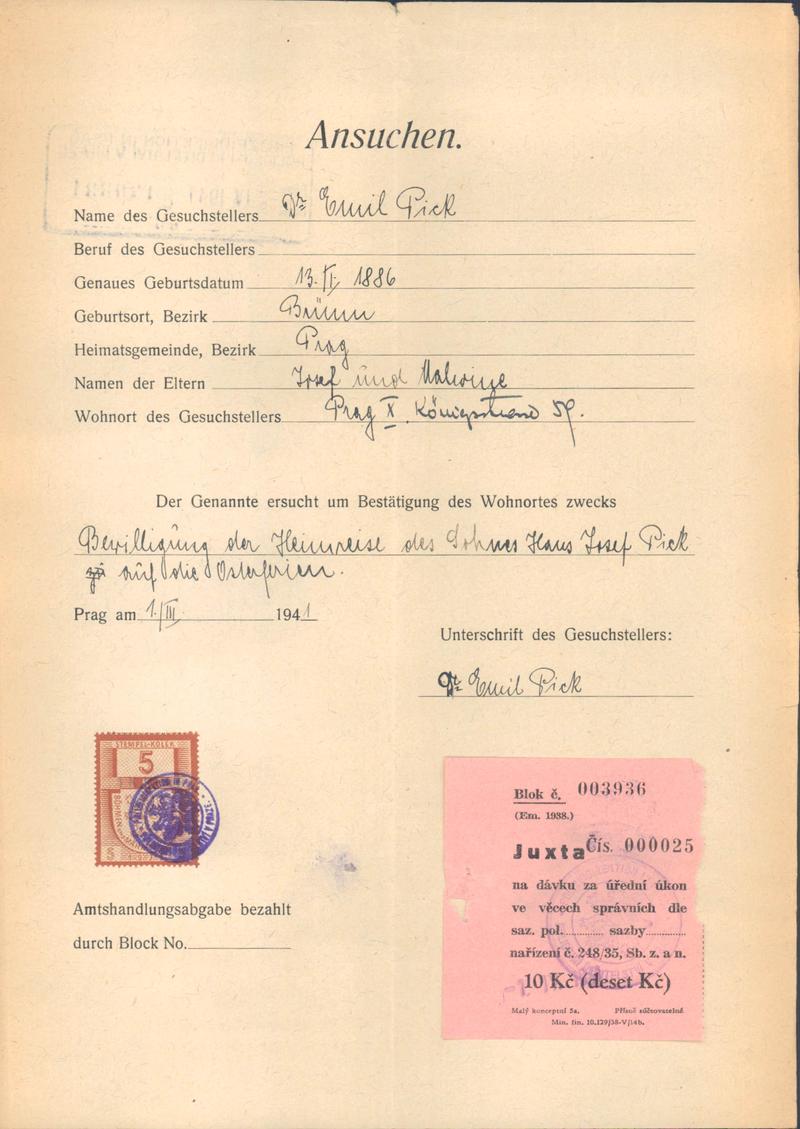 Ansuchen.
Name des Gesuchstellers Dr Emil Pick
Beruf des Gesuchstellers
Genaues Geburtsdatum 13. VI. 1886
Geburtsort, Bezirk Brünn
Heimatsgemeinde, Bezirk Prag
Namen der Eltern Josef und Malwine
Wohnort des Gesuchstellers Prag X. Königstrasse 59.
Der Genannte ersucht um Bestätigung des Wohnortes zwecks
Bewilligung der Heimreise des Sohnes Hans Josef Pick
auf die Osterferien.
Prag am 1./III. 1941
Unterschrift des Gesuchstellers:
Dr Emil Pick
STEMPEL-KOLEK
5
BÖHMEN
Amtshandlungsabgabe bezahlt
durch Block No.
Blok č. 003936
(Em. 1938.)
Juxta Čís. 000025
na dávku za úřední úkon
ve věcech správních dle
saz. pol. sazby
nařízení č. 248/35, Sb. z. a n.
10 Kč (deset Kč)
Malý konceptní 5a. Přísně zúčtovatelné
Min. fin. 10.129/38-V/14b.